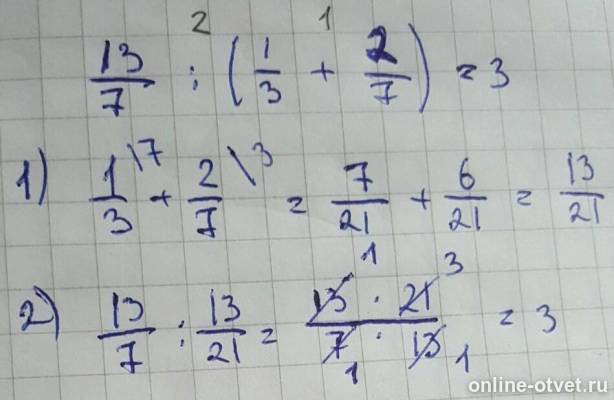 2 1
13/7 : (1/3 + 2/7) = 3
1) 1/3 \7 + 2/7 \3 = 7/21 + 6/21 = 13/21
2) 13/7 : 13/21 = 13 1 · 21 3 / 7 1 · 13 1 = 3
online-otvet.ru